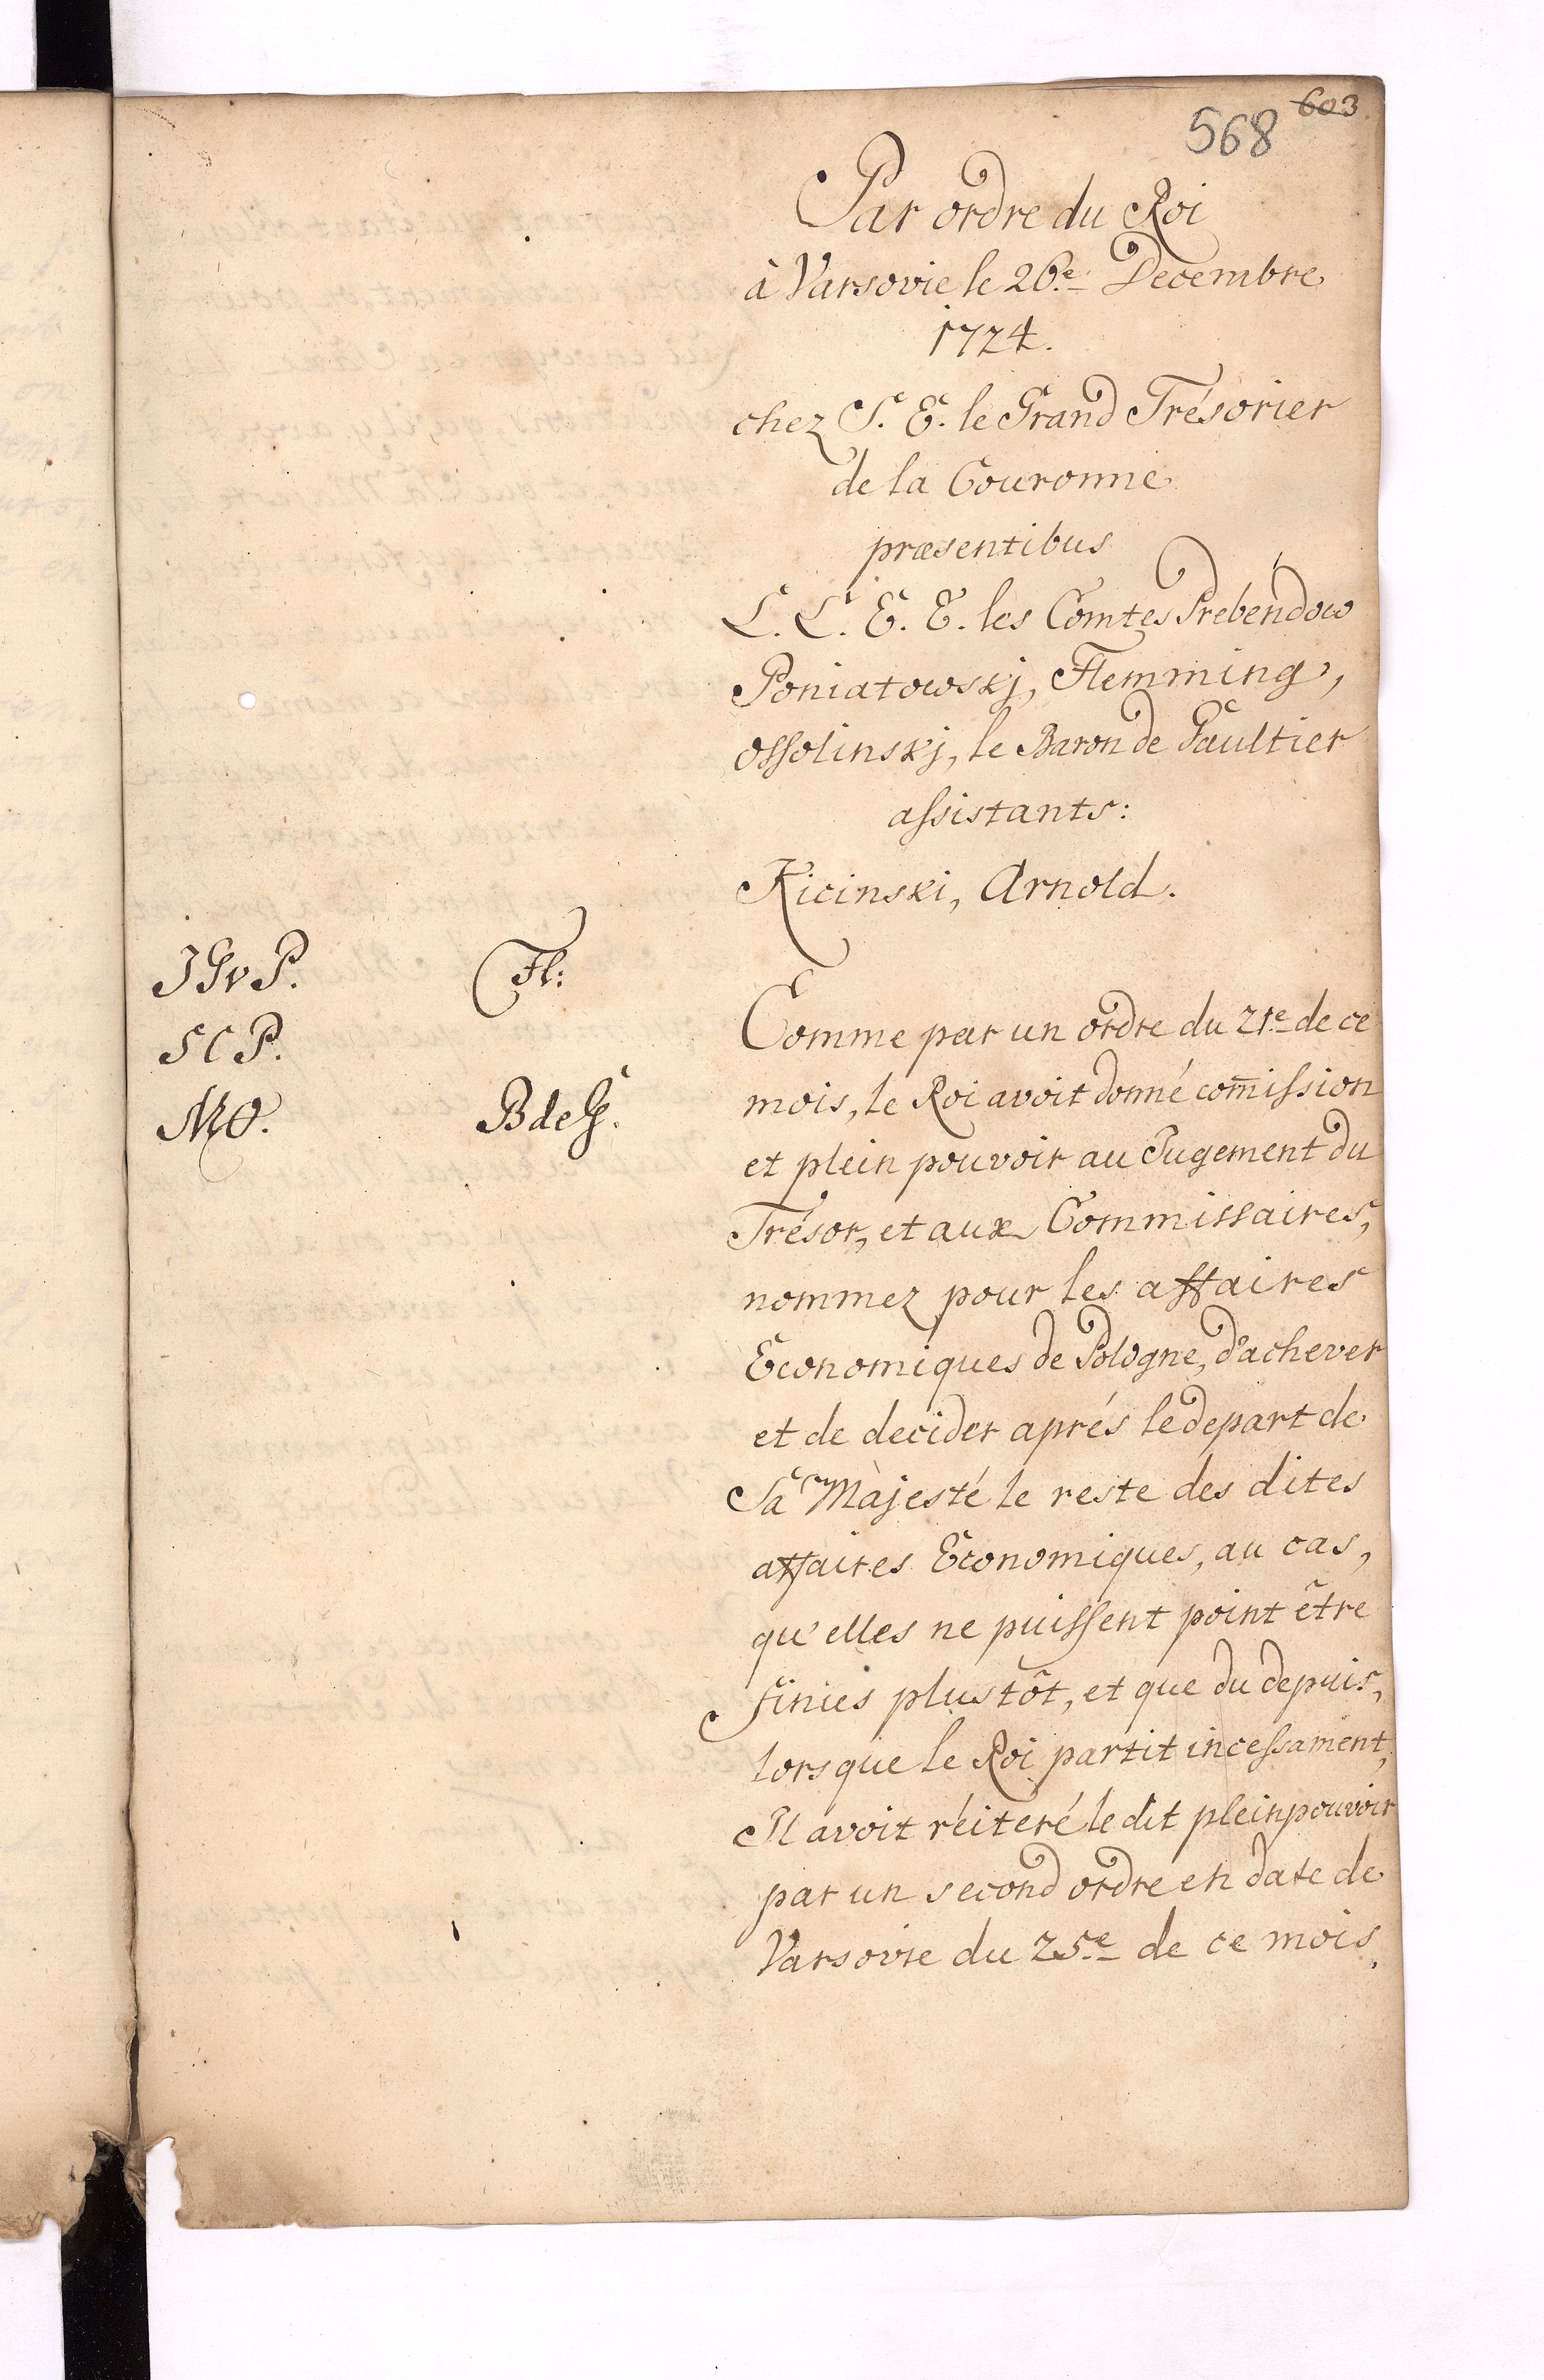 603
568
Par ordre du Roi
à Varsovie le 26.e Decembre
1724.
chez S. E. le Grand Trésorier
de la Couronne
præsentibus
L. L. E. E. les Comtes Prebendow
Poniatowskj, Flemming,
Ossolinskj, le Baron de Gaultier
assistants:
Kicinski, Arnold.
JGvP. Fl:
SCP.
MO. BdeG.
Comme par un ordre du 21.e de ce
mois, le Roi avoit donné com̄ission
et plein pouvoir au Jugement du
Trésor, et aux Commissaires,
nommez pour les affaires
Economiques de Pologne, d'achever
et de decider aprés le depart de
Sa Majesté le reste des dites
affaires Economiques, au cas,
qu'elles ne puissent point être
finies plustôt, et que du depuis,
lorsque le Roi partit incessament,
Il avoit réiteré le dit pleinpouvoir
par un second ordre en date de
Varsovie du 25.e de ce mois,